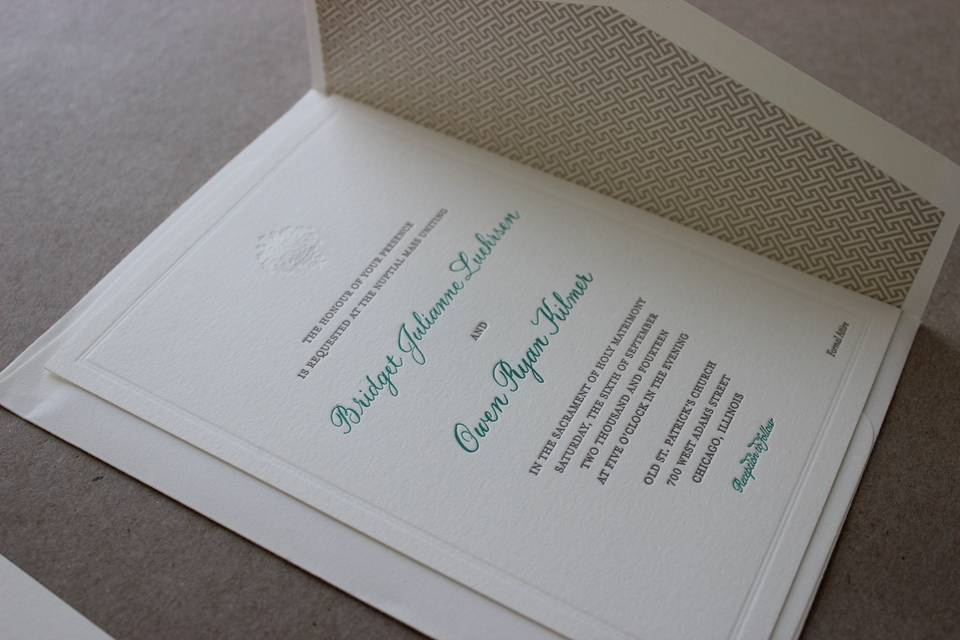 THE HONOUR OF YOUR PRESENCE
IS REQUESTED AT THE NUPTIAL MASS UNITING
Bridget Julianne Luehrsen
AND
Owen Ryan Kilmer
IN THE SACRAMENT OF HOLY MATRIMONY
SATURDAY, THE SIXTH OF SEPTEMBER
TWO THOUSAND AND FOURTEEN
AT FIVE O'CLOCK IN THE EVENING
OLD ST. PATRICK'S CHURCH
700 WEST ADAMS STREET
CHICAGO, ILLINOIS
Reception to follow
Formal Attire